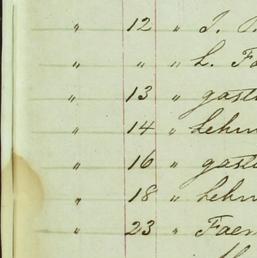 " 12 " J.
" " " L. Fa
" 13 " gasti
" 14 " Lehm
" 16 " gasti
" 18 " Lehm
" 23 " Faen